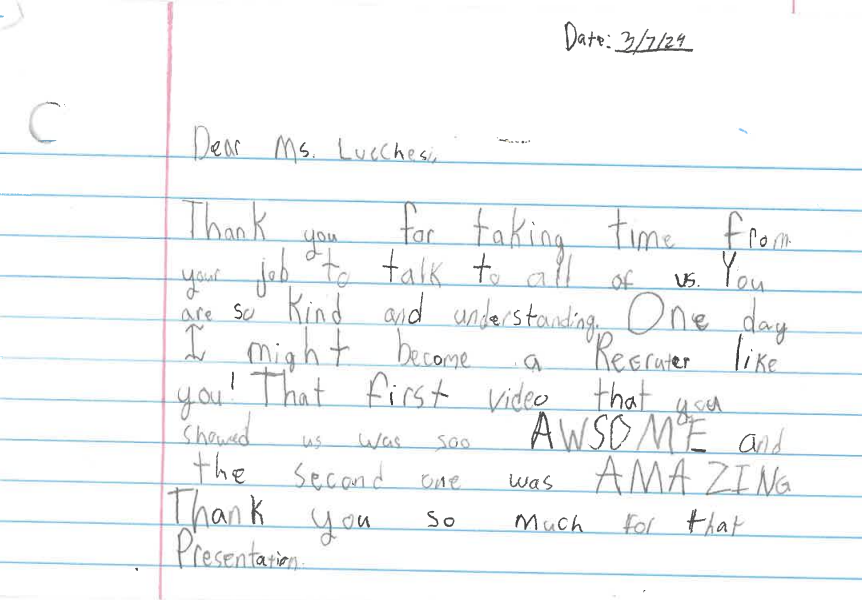 Date: 3/7/24
C
Dear Ms. Lucchesi,
Thank you for taking time from
your job to talk to all of us. You
are so kind and understanding. One day
I might become a Recruter like
you! That first video that you
showed us was soo AWSOME and
the second one was AMAZING
Thank you so much for that
Presentation.